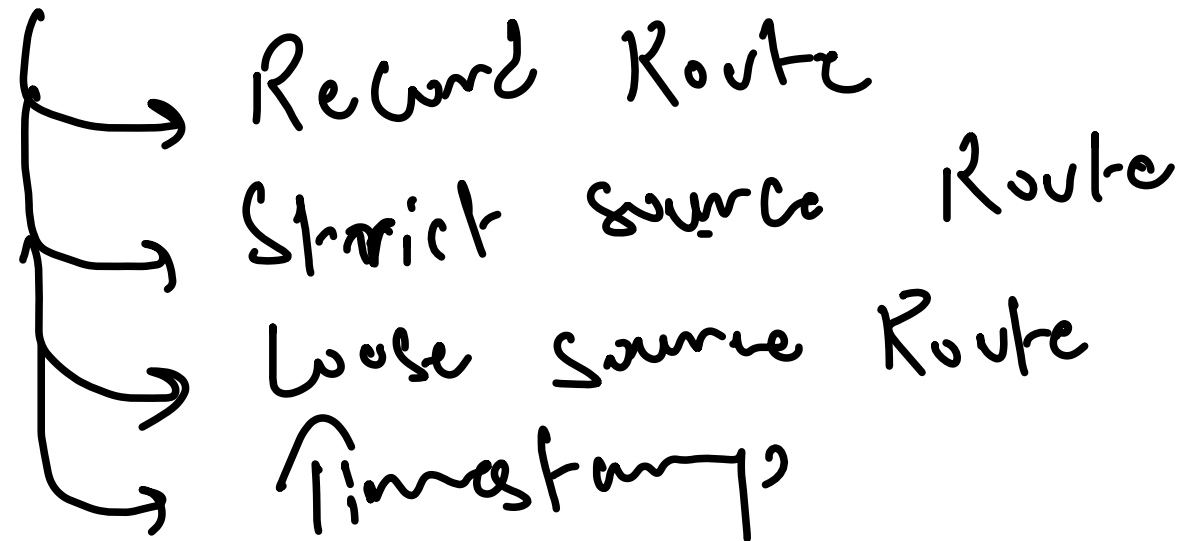 Record Route
Strict source Route
Loose source Route
Timestamp